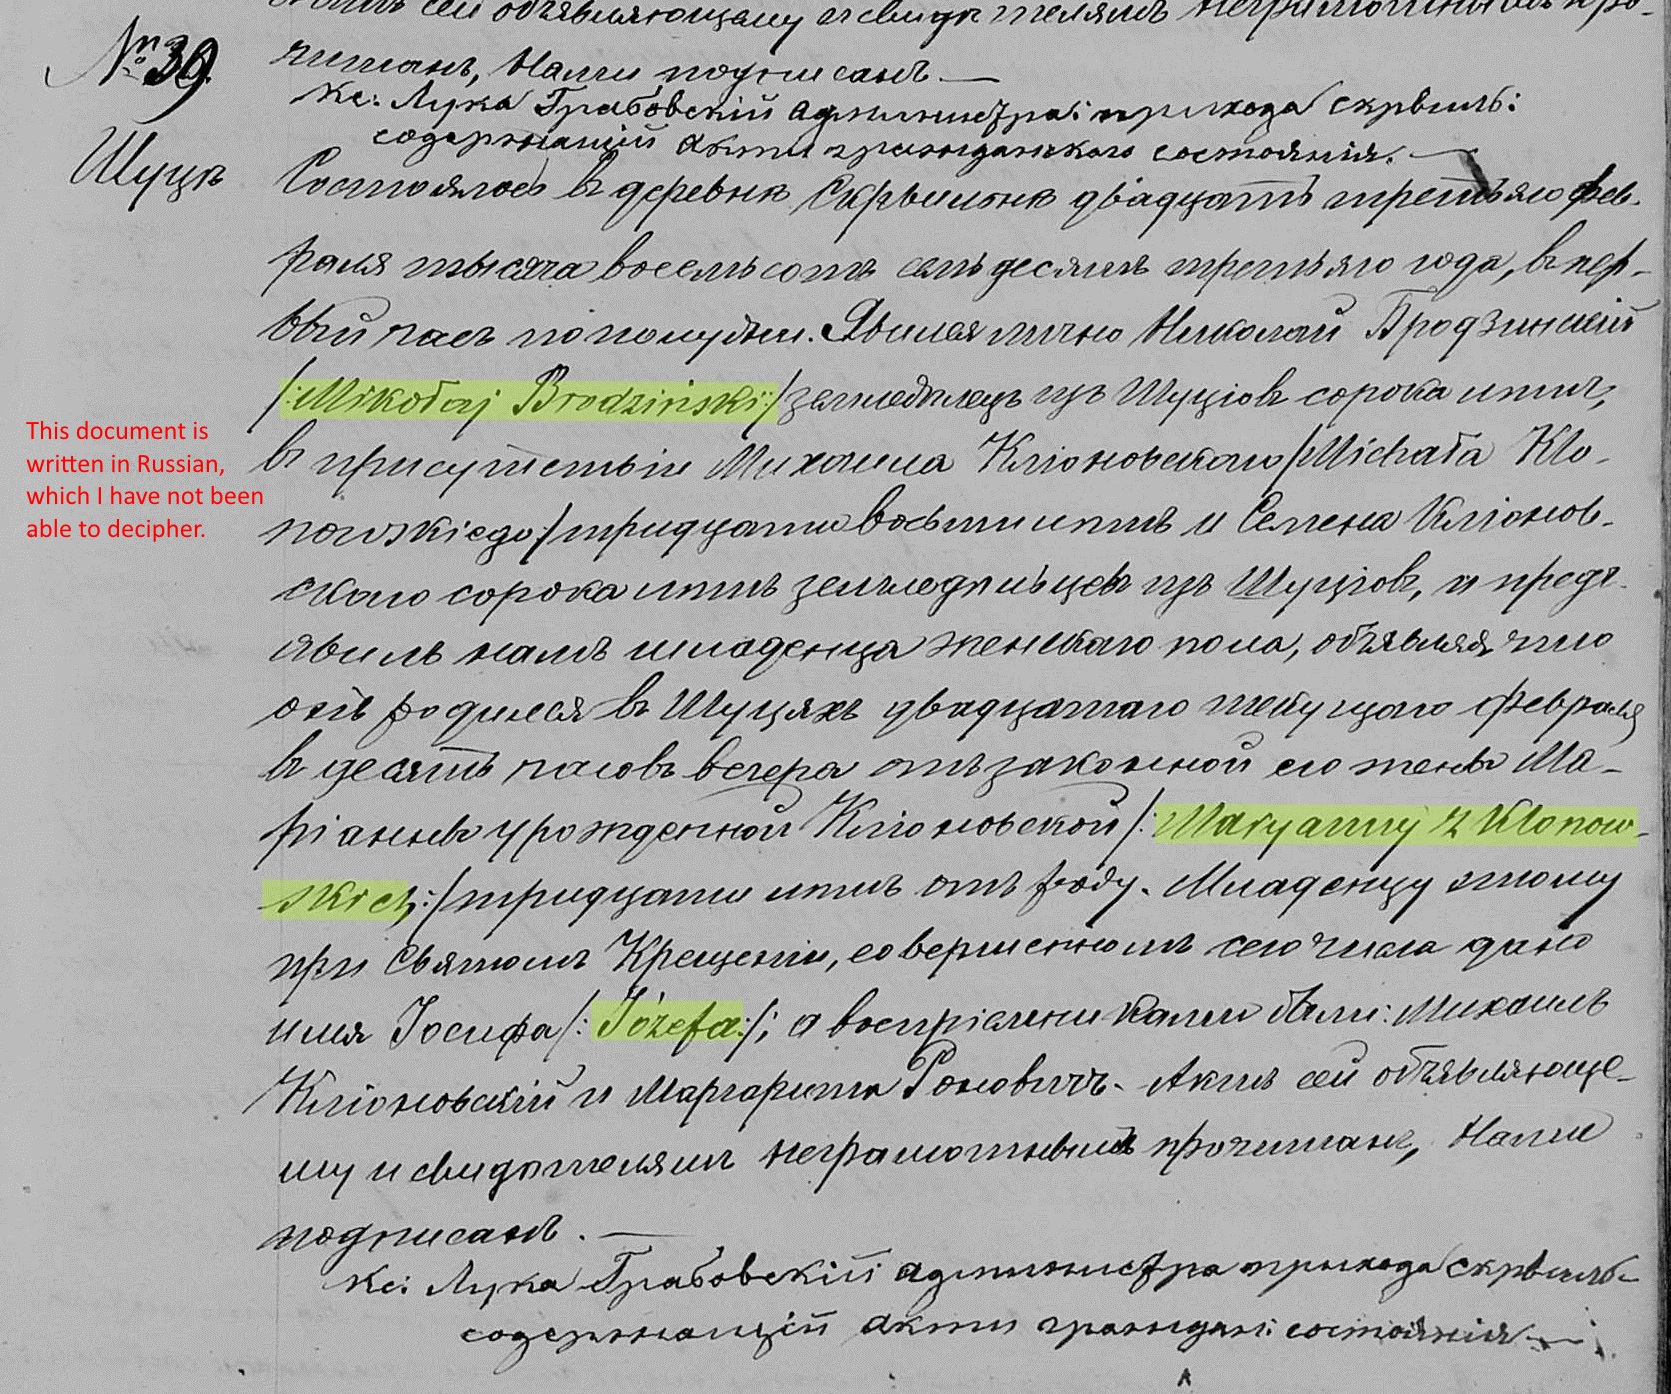 симъ сей объявляющему и свидѣтелямъ неграмотнымъ про-
№ 39
читанъ, Нами подписанъ.—
Кс: Лука Грабовскій администра: прихода скрвиль:
содержащій акты гражданскаго состоянія.—
Шуцѣ
Состоялось въ деревнѣ Скрвильнѣ двадцать третьяго фев-
раля тысяча восемьсотъ семьдесятъ третьяго года, въ пер-
вый часъ по полудни. Явился лично Николай Бродзинскій
/:Mikołaj Brodziński:/ земледѣлецъ изъ Шуціовъ сорока лѣтъ,
This document is
written in Russian,
which I have not been
able to decipher.
въ присутствіи Михаила Клioновскаго /Michała Kło-
nowskiego:/ тридцати восьми лѣтъ и Семена Кліонов-
скаго сорока лѣтъ земледѣльцевъ изъ Шуціовъ, и предъ-
явилъ намъ младенца женскаго пола, объявляя что
онъ родился въ Шуцяхъ двадцатаго текущаго февраля
въ десять часовъ вечера отъ законной его жены Ма-
ріанны урожденной Кліоновской /: Maryanny z Klonow-
skich:/ тридцати лѣтъ отъ роду. Младенцу этому
при Святомъ Крещеніи, совершенномъ сего числа дано
имя Іосифа /: Józefa:/; а воспріемниками были: Михаилъ
Кліоновскій и Маргарита Роновичъ. Актъ сей объявляюще-
му и свидѣтелямъ неграмотнымъ прочитанъ, Нами
подписанъ.—
Кс: Лука Грабовскій администра прихода скрвиль-
содержащій акты граждан: состоянія—